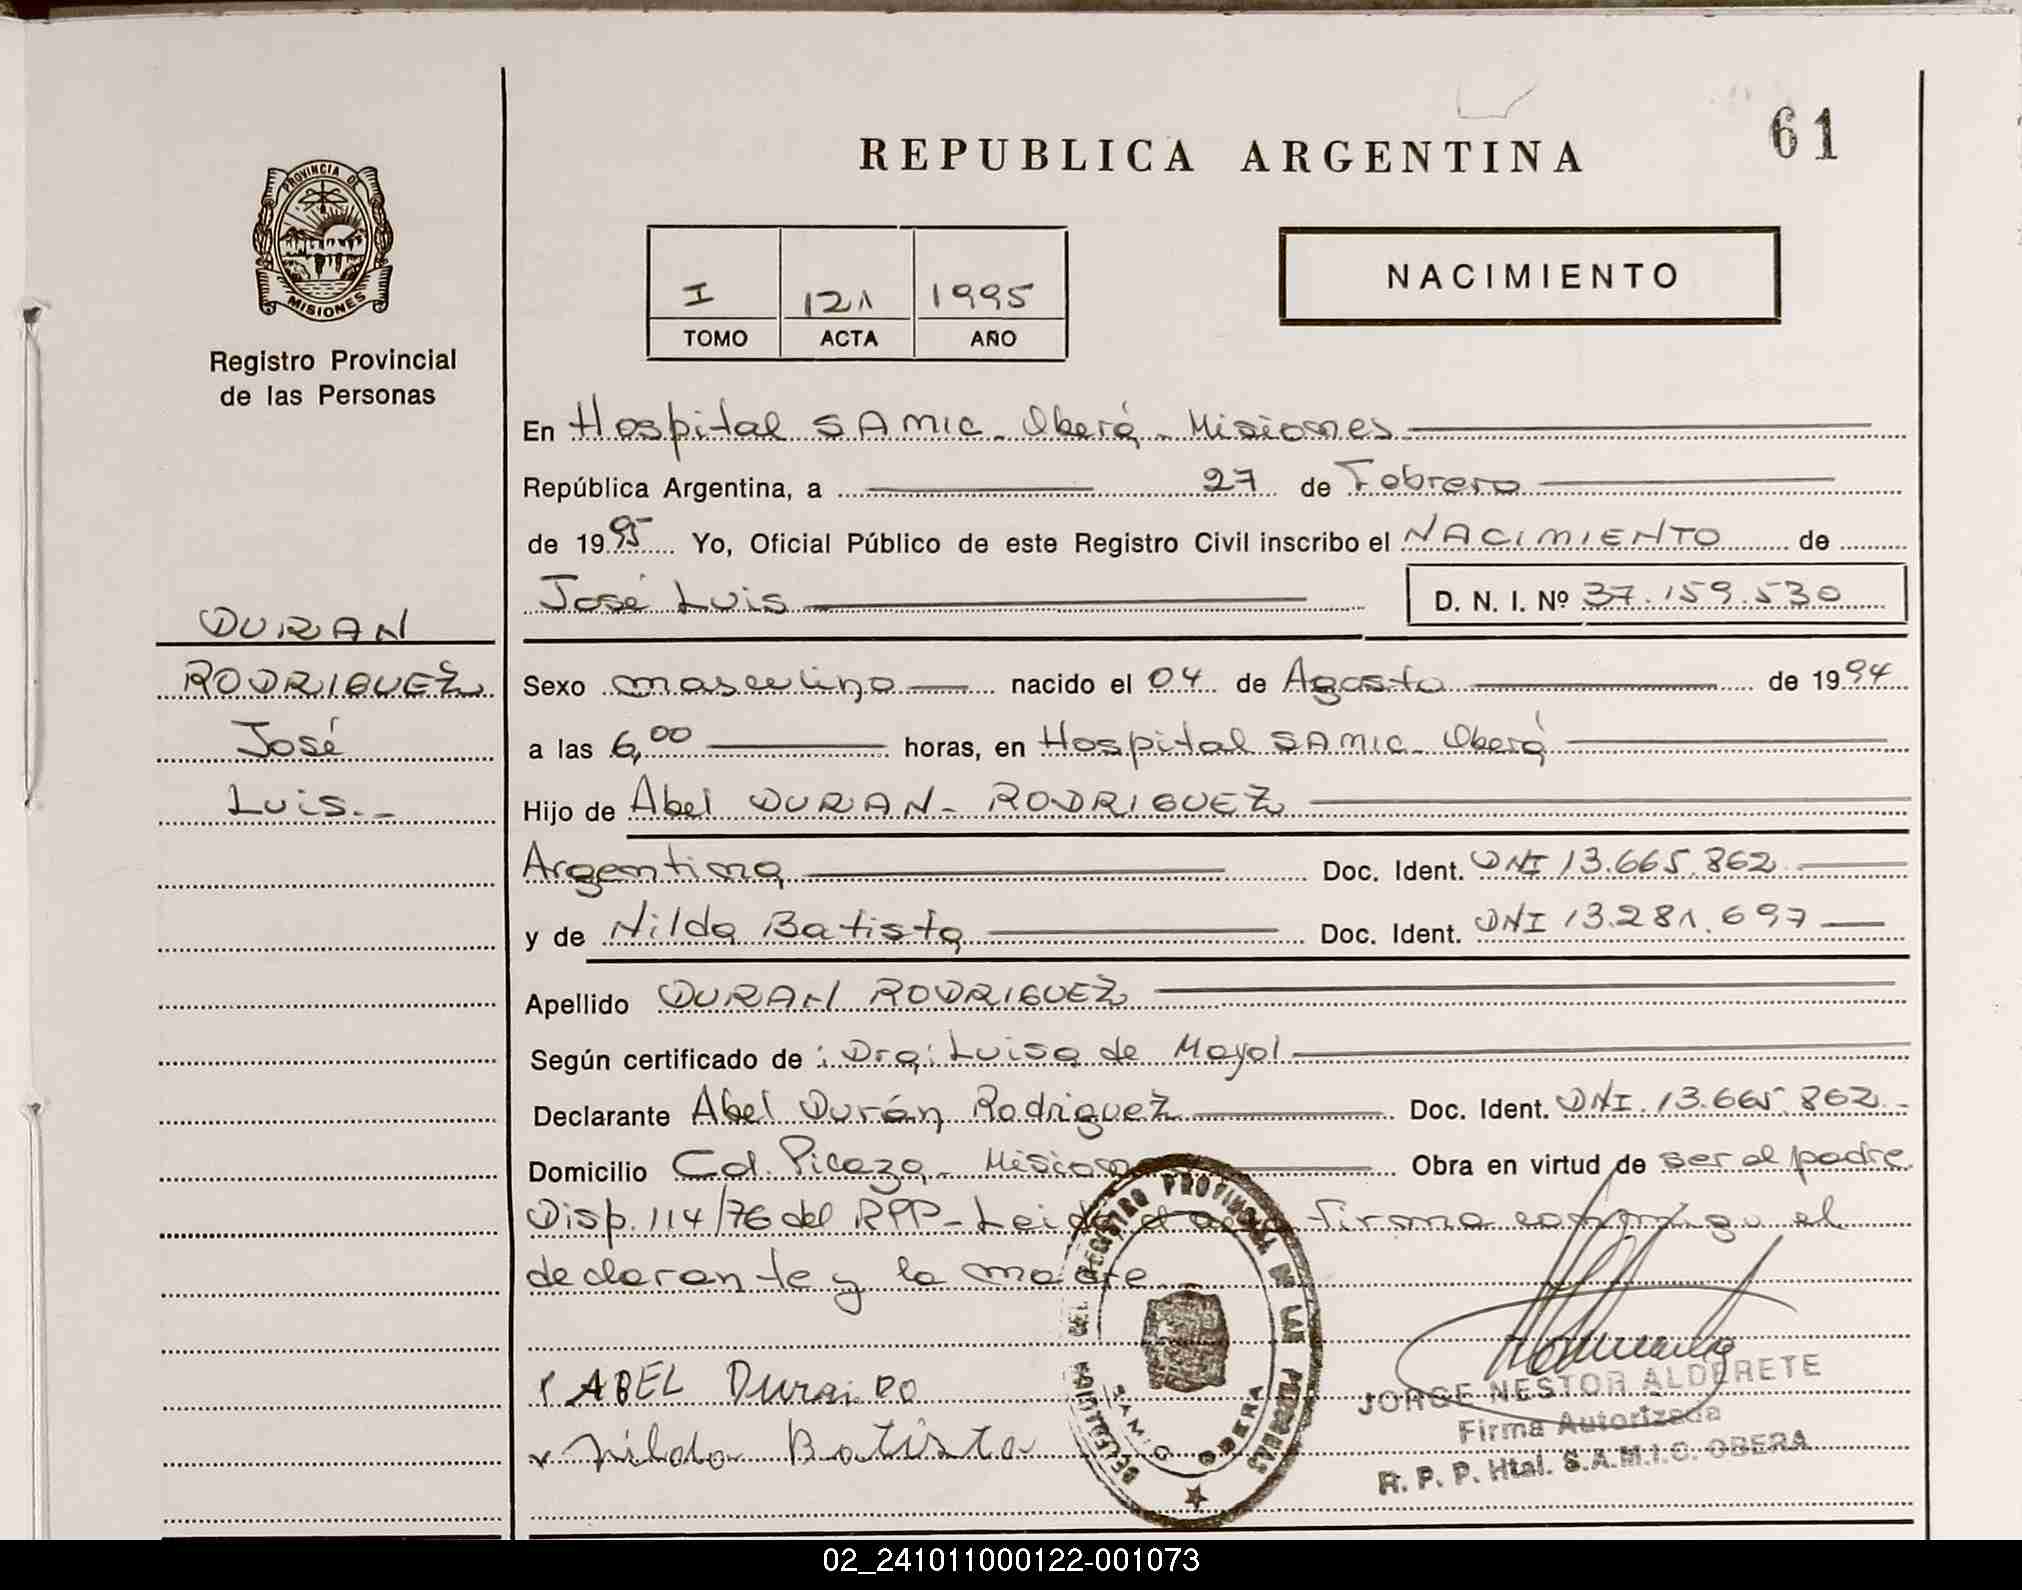 REPUBLICA ARGENTINA
61
PROVINCIA DE
MISIONES
Registro Provincial
de las Personas
I 121 1995
TOMO ACTA AÑO
NACIMIENTO
En Hospital SAMIC - Oberá - Misiones
República Argentina, a 27 de Febrero
de 1995 Yo, Oficial Público de este Registro Civil inscribo el NACIMIENTO de
José Luis D. N. I. Nº 37.159.530
DURAN
RODRIGUEZ
José
Luis.-
Sexo masculino nacido el 04 de Agosto de 1994
a las 6,00 horas, en Hospital SAMIC - Oberá
Hijo de Abel DURAN - RODRIGUEZ
Argentina Doc. Ident. DNI 13.665.862
y de Nilda Batista Doc. Ident. DNI 13.281.697
Apellido DURAN RODRIGUEZ
Según certificado de : Dra: Luisa de Mayol
Declarante Abel Durán Rodriguez Doc. Ident. DNI. 13.665.862 -
Domicilio Col. Picaza - Misiones Obra en virtud de ser el padre
Disp. 114/76 del RPP - Leida el acta firma conmigo el
declarante y la madre
ABEL Duran
Nilda Batista
DELEGACION DEL REGISTRO PROVINCIAL DE LAS PERSONAS
SAMIC OBERA
JORGE NESTOR ALDERETE
Firma Autorizada
R. P. P. Htal. S.A.M.I.C. OBERA
02_241011000122-001073